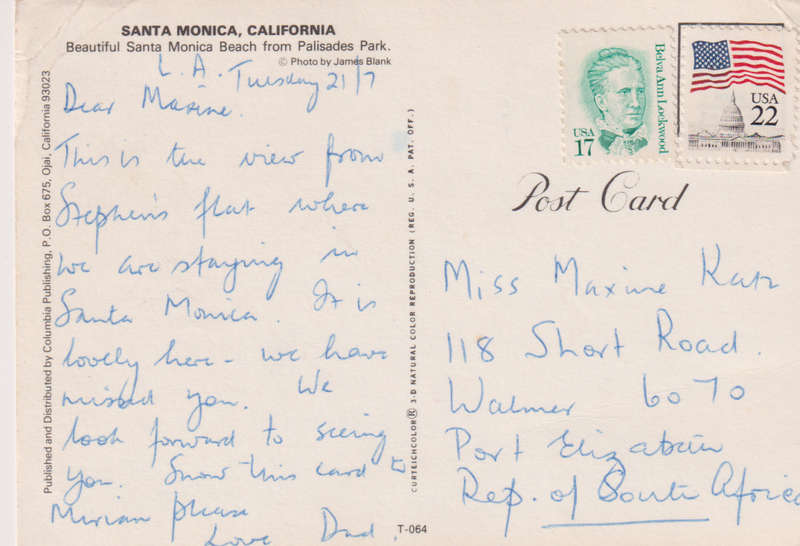 SANTA MONICA, CALIFORNIA
Beautiful Santa Monica Beach from Palisades Park.
© Photo by James Blank
L.A. Tuesday 21/7
Dear Maxine.
This is the view from
Stephen's flat where
we are staying in
Santa Monica. It is
lovely here - we have
missed you. We
look forward to seeing
you. Show this card to
Mirian please
Love Dad.
Published and Distributed by Columbia Publishing, P.O. Box 675, Ojai, California 93023
CURTEICHCOLOR® 3-D NATURAL COLOR REPRODUCTION (REG. U. S. A. PAT. OFF.)
T-064
USA
17
Belva Ann Lockwood
USA
22
Post Card
Miss Maxine Katz
118 Short Road.
Walmer 6070
Port Elizabeth
Rep. of South Africa